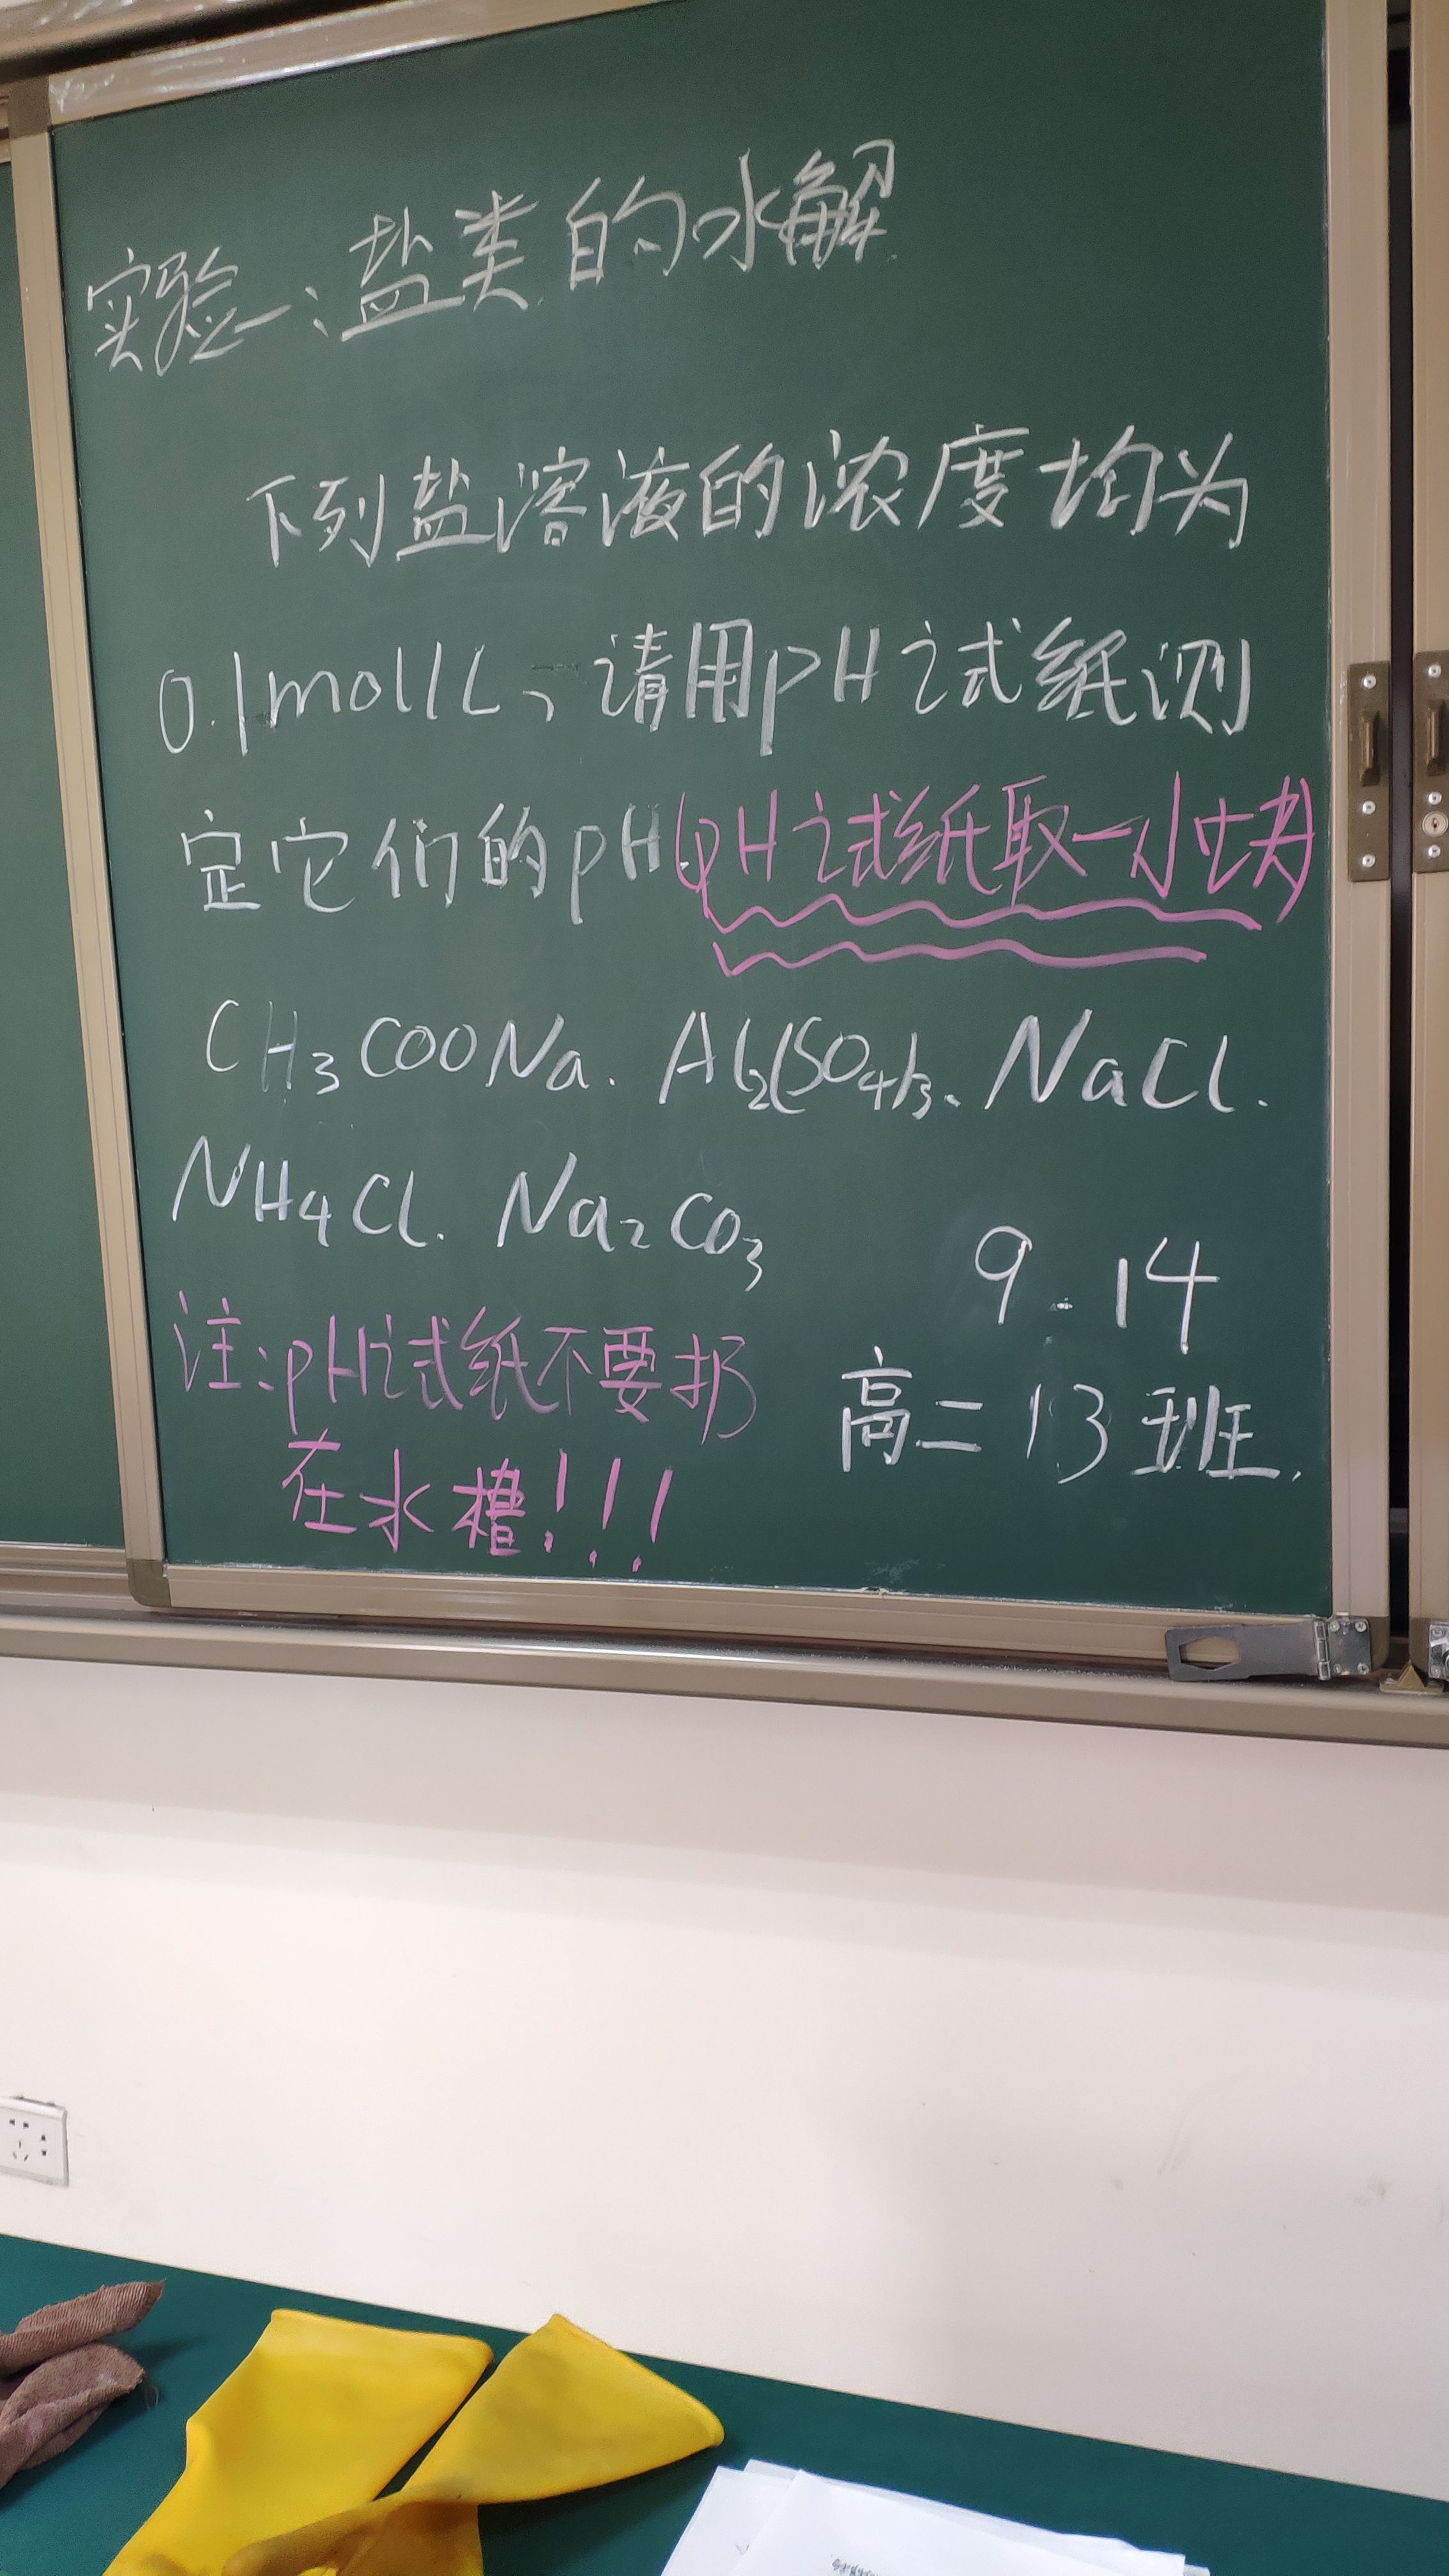 实验一:盐类的水解
下列盐溶液的浓度均为
0.1mol/L、请用pH试纸测
定它们的pH(pH试纸取一小块)
CH₃COONa. Al₂(SO₄)₃、NaCl.
NH₄Cl. Na₂CO₃
注:pH试纸不要扔
在水槽!!!
9.14
高二13班.